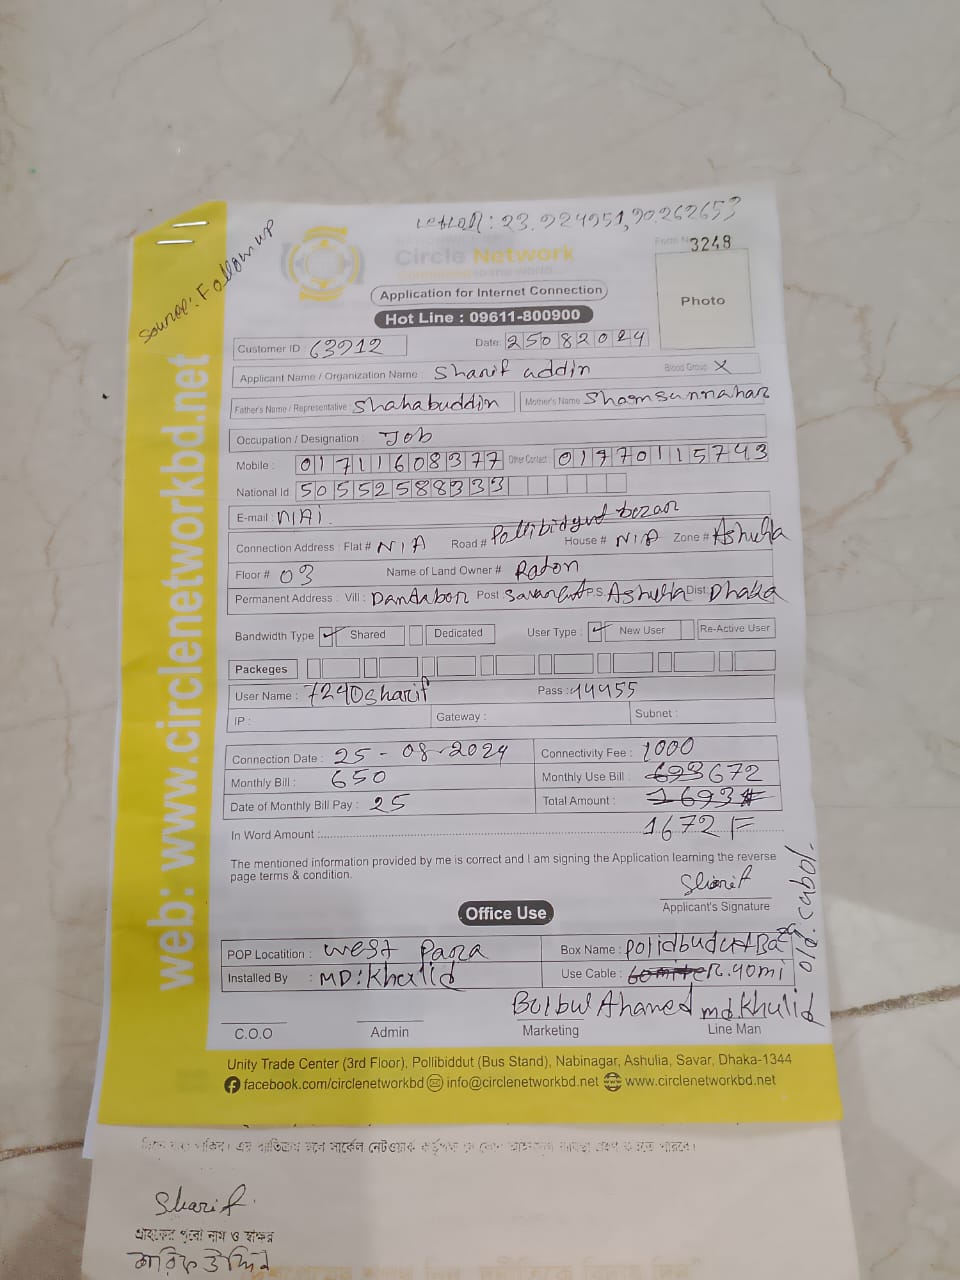 23.924951, 90.262653
Source: Followup
Circle Network
Form No 3248
Application for Internet Connection
Photo
Hot Line : 09611-800900
Customer ID : 63912 Date: 25082024
Applicant Name / Organization Name : Sharif uddin Blood Group X
Father's Name / Representative : Shahabuddin Mother's Name Shamsunnahar
Occupation / Designation : Job
Mobile : 01711608377 Other Contact : 01770115743
National Id: 50552588333
E-mail : N/A
Connection Address : Flat # N/A Road # Pollibidyud bazar House # N/A Zone # Ashulia
Floor # 03 Name of Land Owner # Raton
Permanent Address : Vill : Dandabor Post P.S Ashulia Dist: Dhaka
Bandwidth Type ✓ Shared Dedicated User Type : ✓ New User Re-Active User
Packeges
User Name : 7240sharif Pass : 44455
IP : Gateway : Subnet :
Connection Date : 25-08-2024 Connectivity Fee : 1000
Monthly Bill : 650 Monthly Use Bill : 693 672
Date of Monthly Bill Pay : 25 Total Amount : 1693
In Word Amount : 1672/=
The mentioned information provided by me is correct and I am signing the Application learning the reverse
page terms & condition.
Sharif
Applicant's Signature
Office Use
POP Locatition : West Para Box Name :
Installed By : MD: Khalid Use Cable :
old cabol.
Bulbul Ahamed md Khulid
C.O.O Admin Marketing Line Man
Unity Trade Center (3rd Floor), Pollibiddut (Bus Stand), Nabinagar, Ashulia, Savar, Dhaka-1344
facebook.com/circlenetworkbd info@circlenetworkbd.net www.circlenetworkbd.net
web: www.circlenetworkbd.net
Sharif
গ্রাহকের পুরো নাম ও স্বাক্ষর